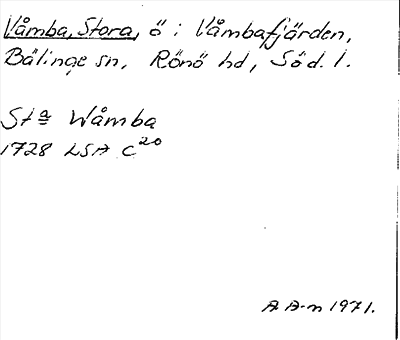 Våmba, Stora, ö i Våmbafjärden,
Bälinge sn, Rönö hd, Söd. l.
Sta Wåmba
1728 LSA C20
A A-n 1971.